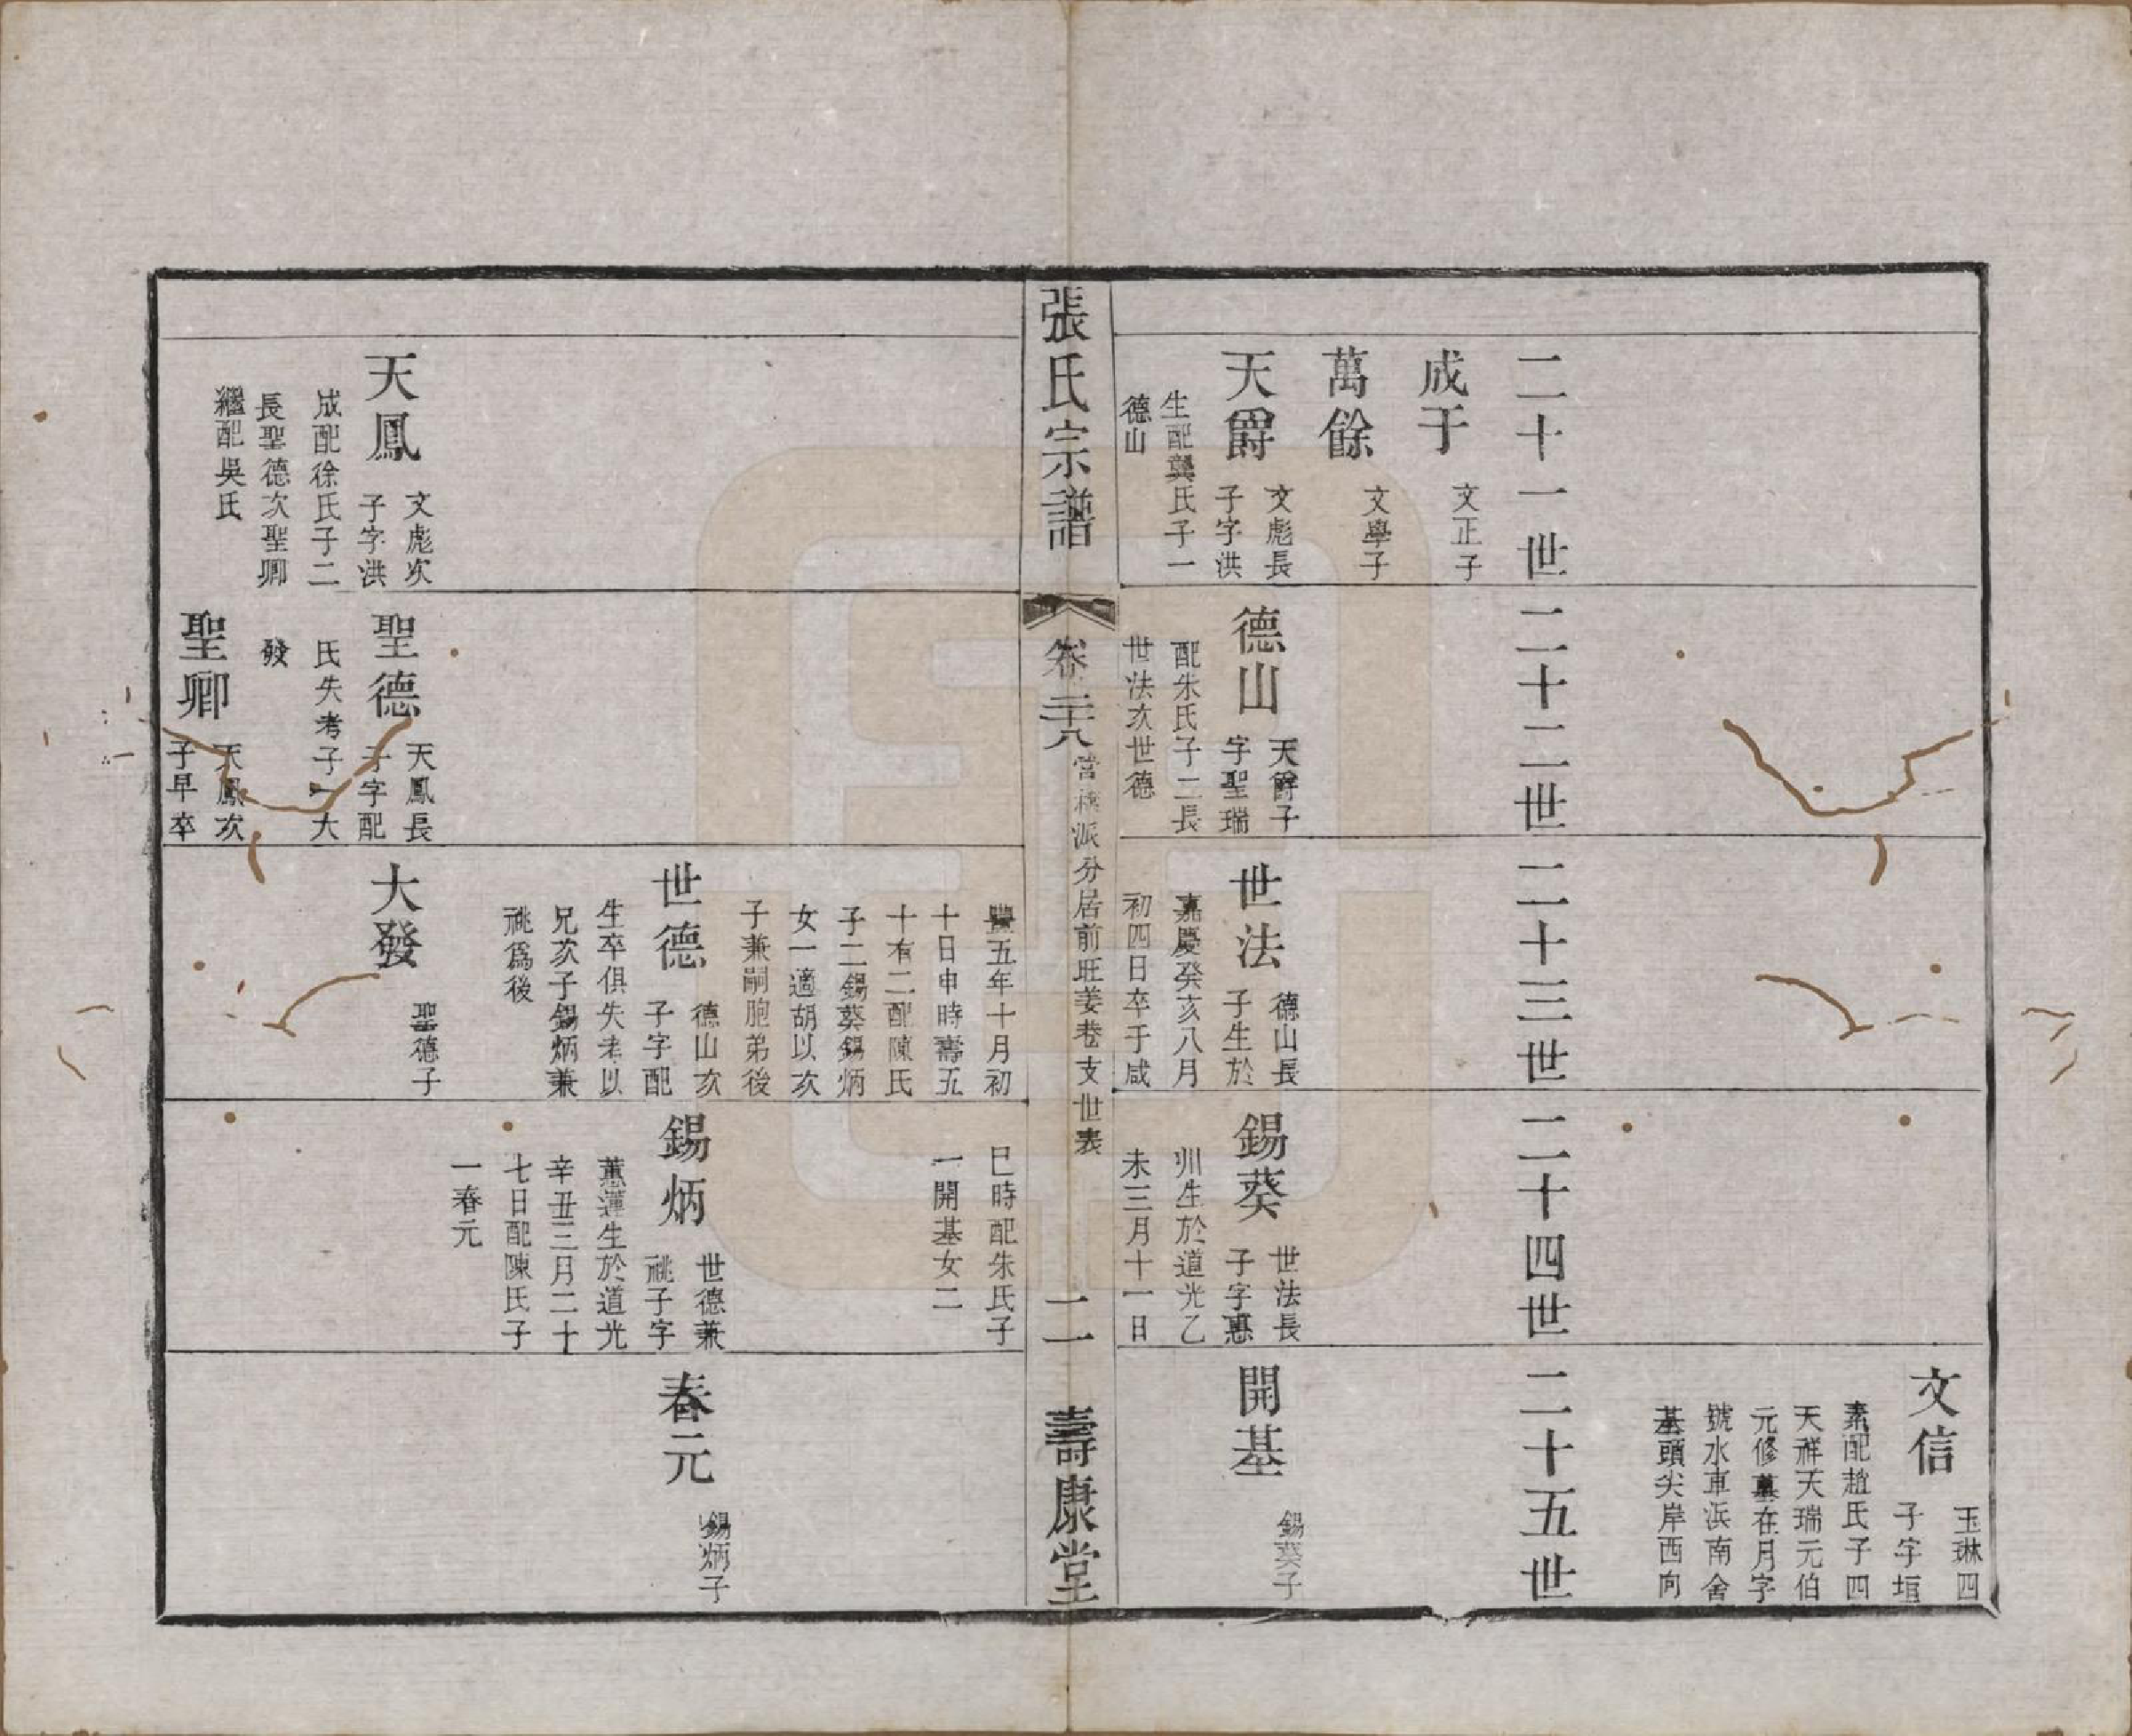 文信
玉琳四
子字垣
素配趙氏子四
天祥天瑞元伯
元修墓在月字
號水車浜南舍
基頭尖岸西向
二十一世
成于
文正子
萬餘
文學子
天爵
文彪長
子字洪
生配龔氏子一
德山
二十二世
德山
天爵子
字聖瑞
配朱氏子二長
世法次世德
二十三世
世法
德山長
子生於
嘉慶癸亥八月
初四日卒于咸
二十四世
錫葵
世法長
子字惠
州生於道光乙
未三月十一日
二十五世
開基
錫葵子
張氏宗譜
卷二十八
派分居前旺姜巷支世表
二
壽康堂
天鳳
文彪次
子字洪
成配徐氏子二
長聖德次聖卿
繼配吳氏
聖德
天鳳長
子字配
氏失考子一大
發
聖卿
天鳳次
子早卒
豐五年十月初
十日申時壽五
十有二配陳氏
子二錫葵錫炳
女一適胡以次
子兼嗣胞弟後
世德
德山次
子字配
生卒俱失考以
兄次子錫炳兼
祧爲後
大發
聖德子
巳時配朱氏子
一開基女二
錫炳
世德兼
祧子字
蕙蓮生於道光
辛丑三月二十
七日配陳氏子
一春元
春元
錫炳子